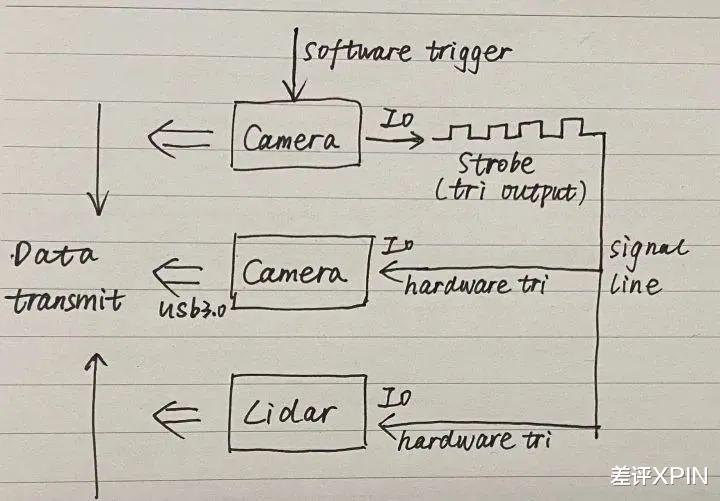 software trigger
Camera
IO
Strobe
(tri output)
Data
transmit
usb3.0
Camera
IO
hardware tri
signal
line
Lidar
IO
hardware tri
差评XPIN